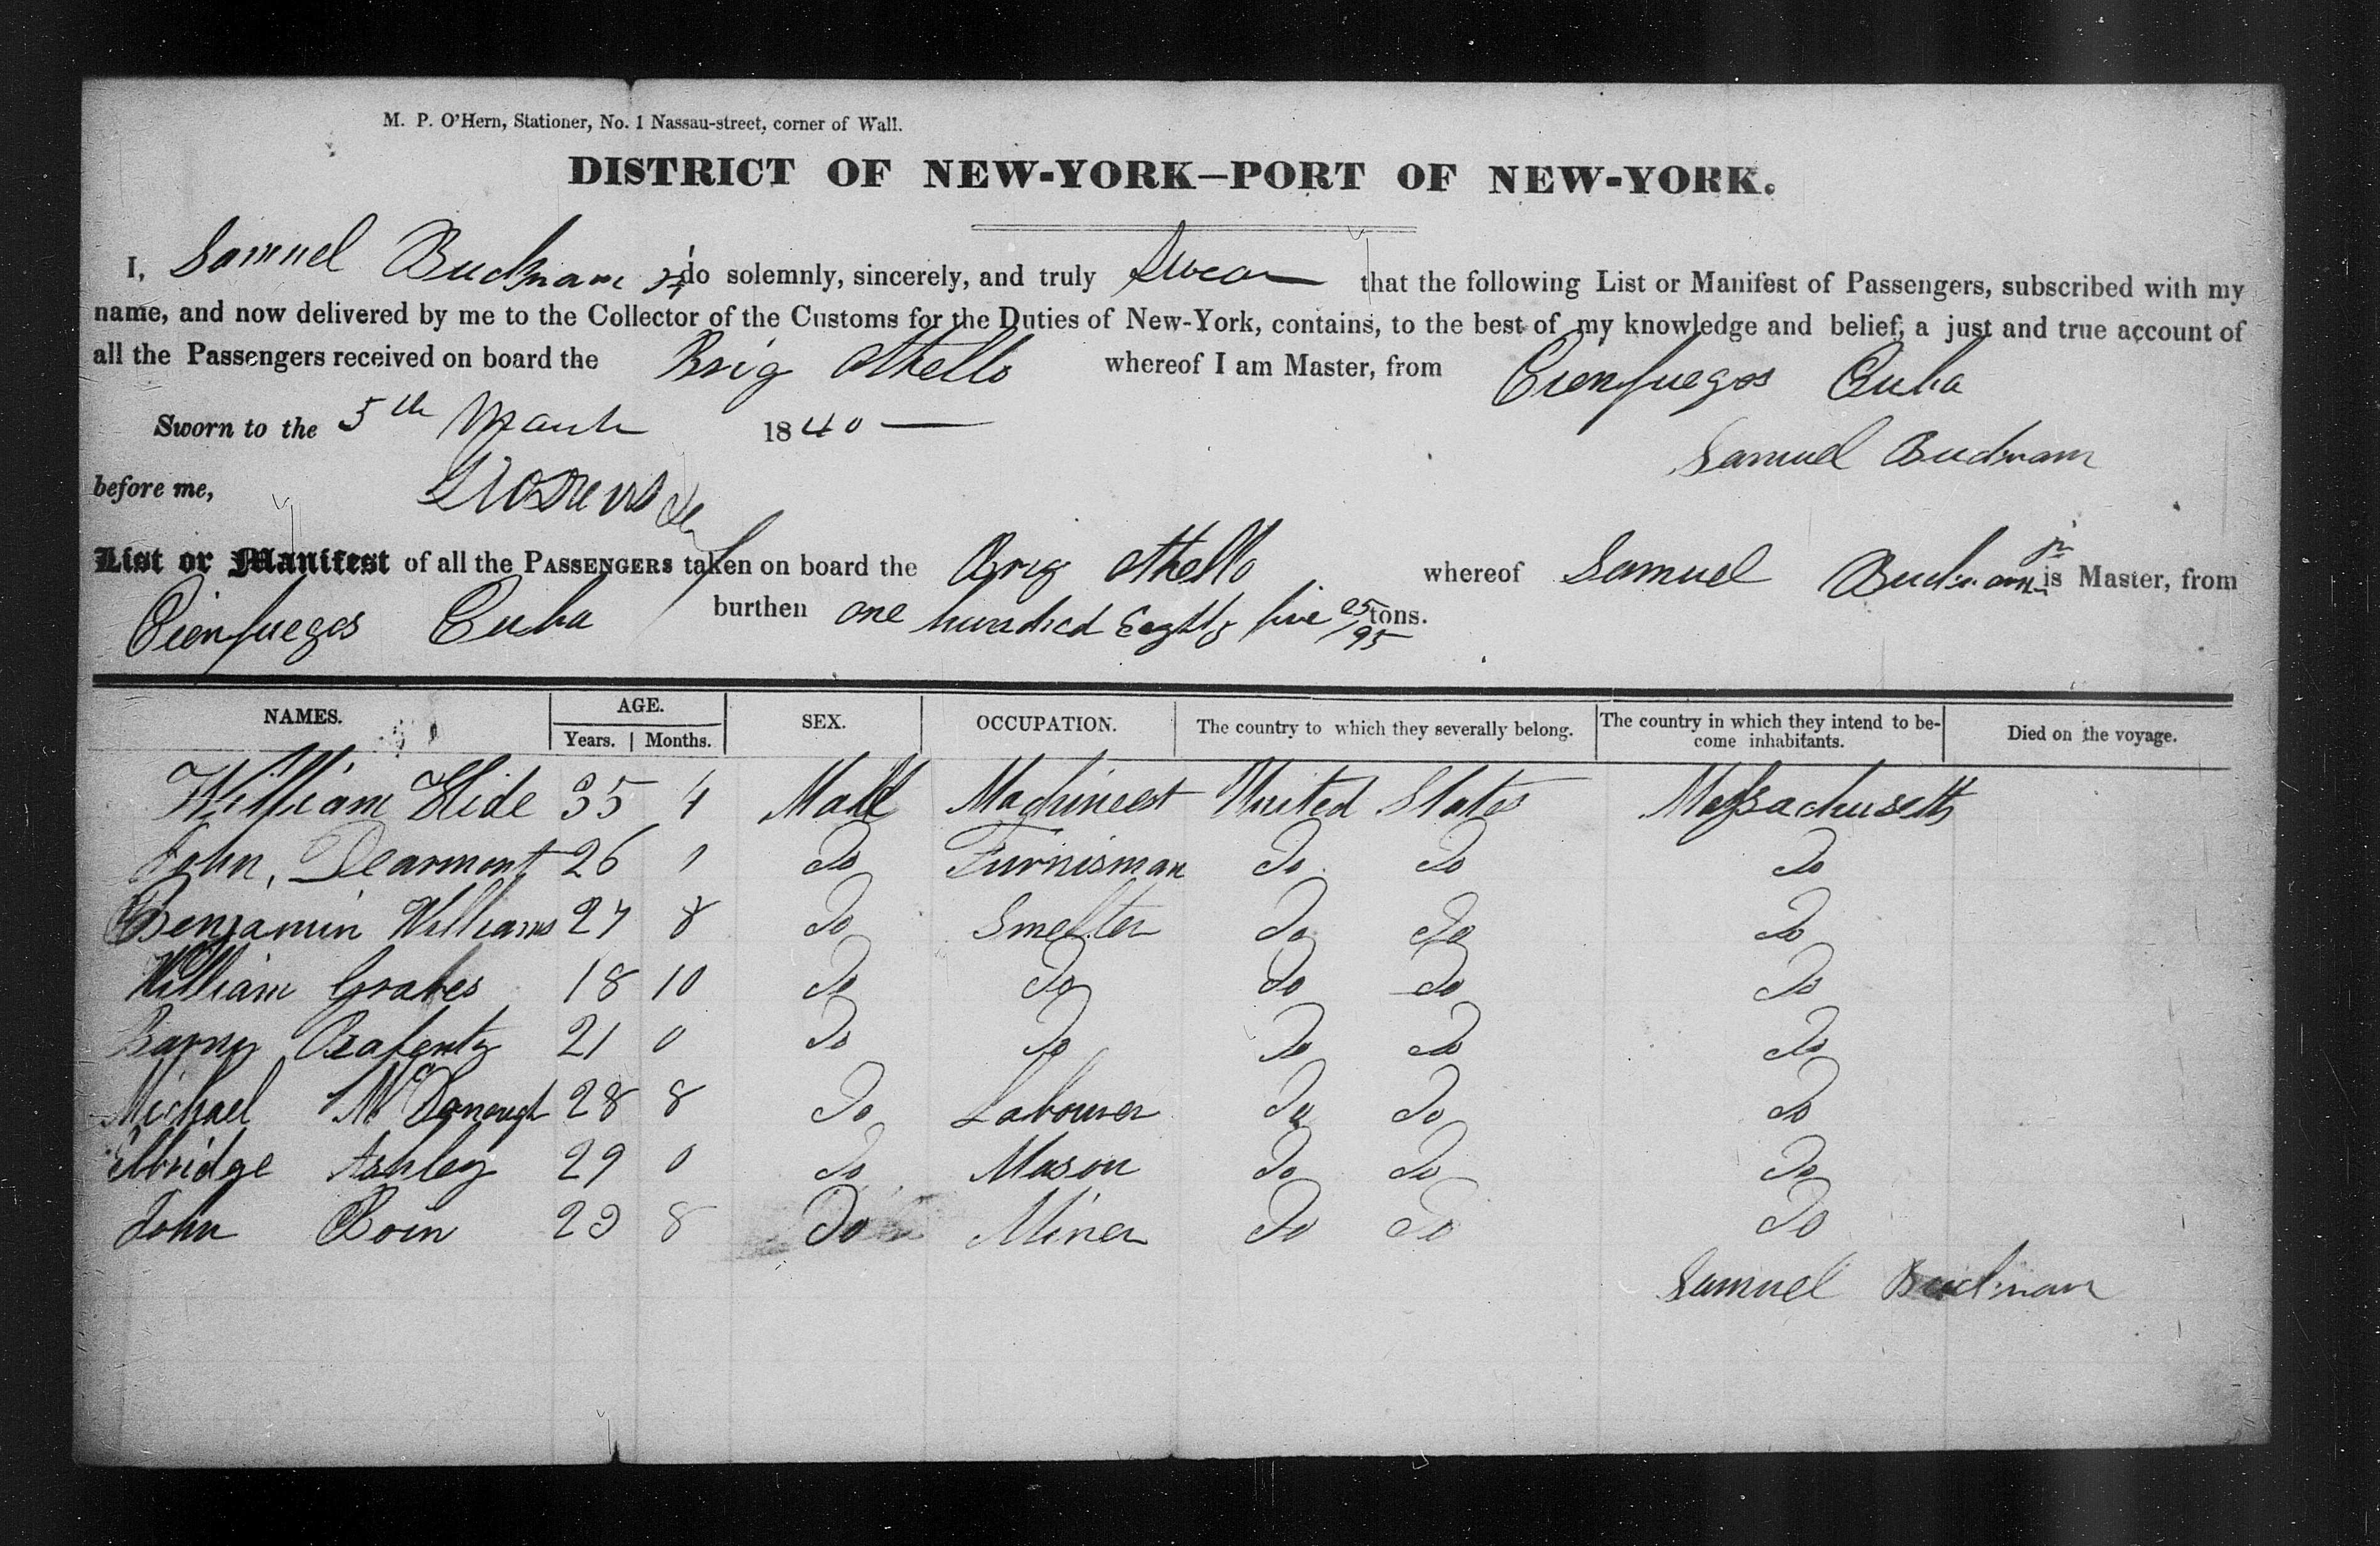 M. P. O'Hern, Stationer, No. 1 Nassau-street, corner of Wall.
DISTRICT OF NEW-YORK—PORT OF NEW-YORK.
I, Samuel Bucknam Jr do solemnly, sincerely, and truly Swear that the following List or Manifest of Passengers, subscribed with my
name, and now delivered by me to the Collector of the Customs for the Duties of New-York, contains, to the best of my knowledge and belief, a just and true account of
all the Passengers received on board the Brig Othello whereof I am Master, from Cienfuegos Cuba
Sworn to the 5th March 1840 Samuel Bucknam
before me,
List or Manifest of all the PASSENGERS taken on board the Brig Othello whereof Samuel Bucknam jr is Master, from
Cienfuegos Cuba burthen one hundred Eighty five 25/95 tons.
NAMES. AGE. SEX. OCCUPATION. The country to which they severally belong. The country in which they intend to be-come inhabitants. Died on the voyage.
Years. Months.
William Hide 35 4 Male Machineest United States Massachusetts
John, Dearmont 26 1 Do Furnisman Do Do Do
Benjamin Williams 27 8 Do Smelter Do Do Do
William Graves 18 10 Do Do Do Do Do
21 0 Do Do Do Do Do
Michael McDonough 28 8 Do Labourer Do Do Do
Elbridge Ashley 29 0 Do Mason Do Do Do
John 23 8 Do Miner Do Do Do
Samuel Bucknam